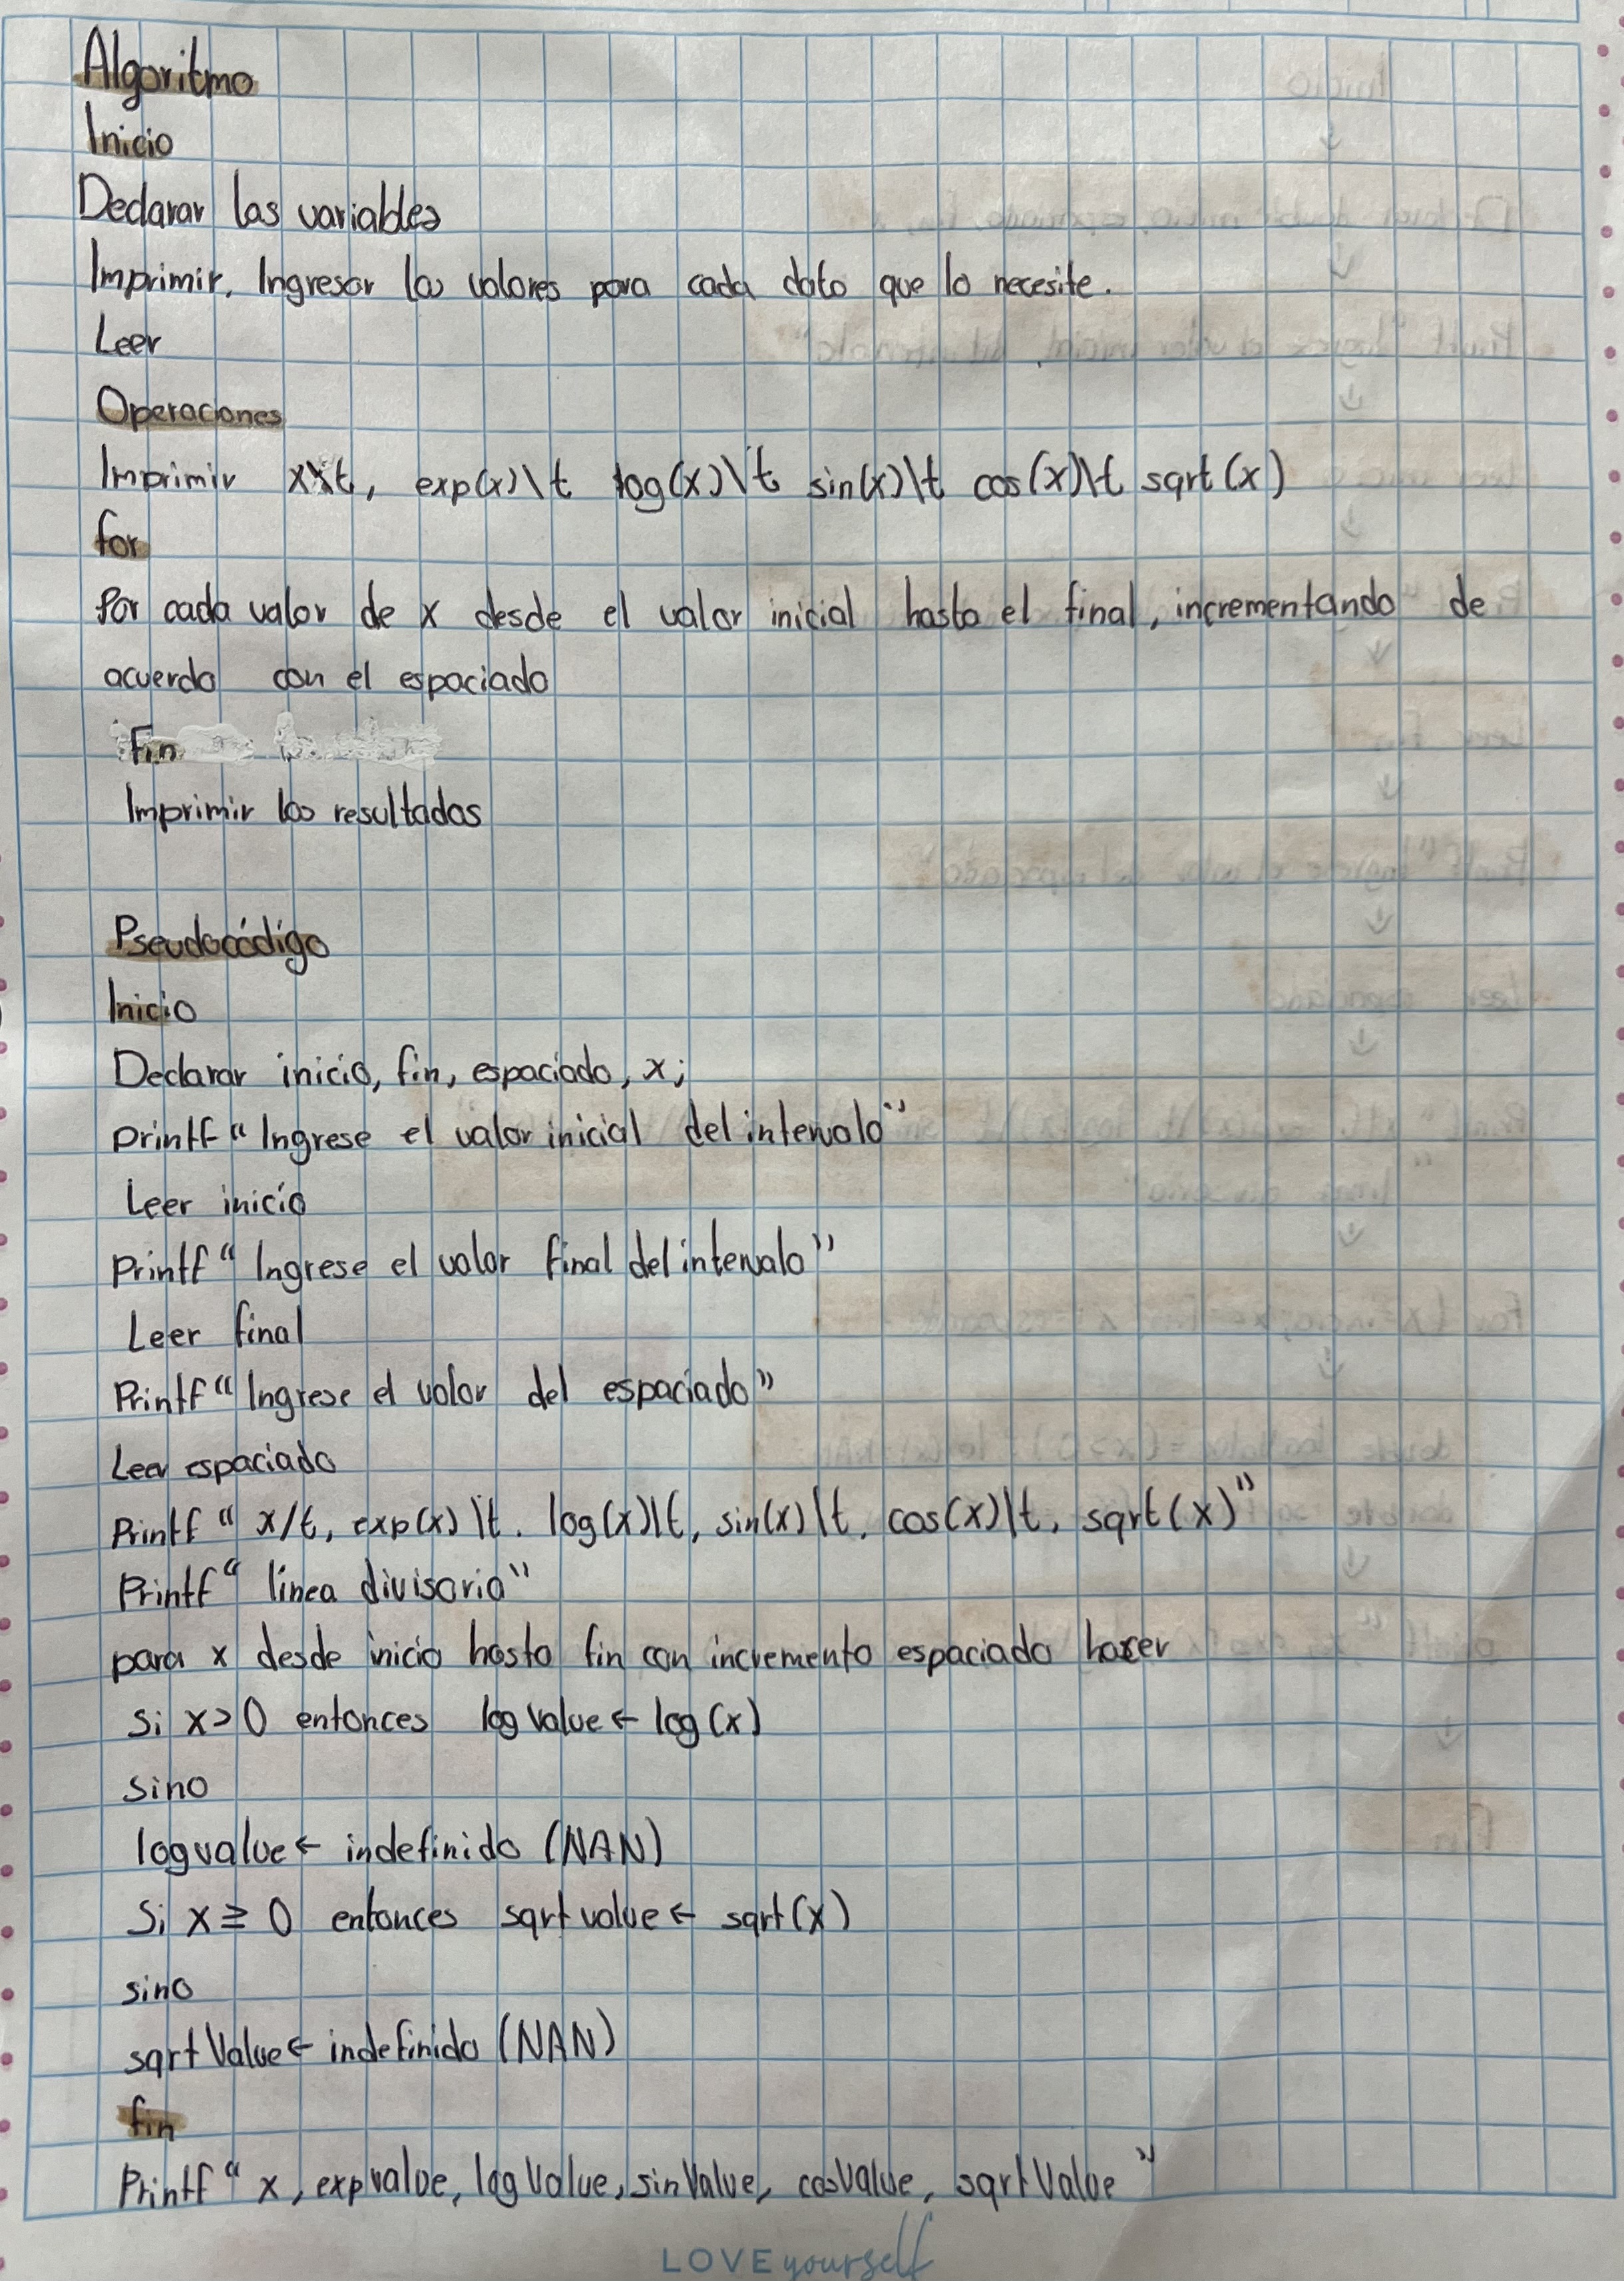 Algoritmo
Inicio
Declarar las variables
Imprimir, Ingresar los valores para cada dato que lo necesite.
Leer
Operaciones
Imprimir x\t, exp(x)\t log(x)\t sin(x)\t cos(x)\t sqrt(x)
for
Por cada valor de x desde el valor inicial hasta el final, incrementando de
acuerdo con el espaciado
Fin
Imprimir los resultados
Pseudocódigo
Inicio
Declarar inicio, fin, espaciado, x;
printf "Ingrese el valor inicial del intervalo"
Leer inicio
printf "Ingrese el valor final del intervalo"
Leer final
Printf "Ingrese el valor del espaciado"
Leer espaciado
Printf " x/t, exp(x)\t. log(x)\t, sin(x)\t, cos(x)\t, sqrt(x)"
Printf " línea divisoria"
para x desde inicio hasta fin con incremento espaciado hacer
Si x>0 entonces logValue ← log(x)
sino
logvalue ← indefinido (NAN)
Si x ≥ 0 entonces sqrtvalue ← sqrt(x)
sino
sqrtValue ← indefinido (NAN)
fin
Printf " x, expvalue, logValue, sinValue, cosValue, sqrtValue"
LOVE yourself